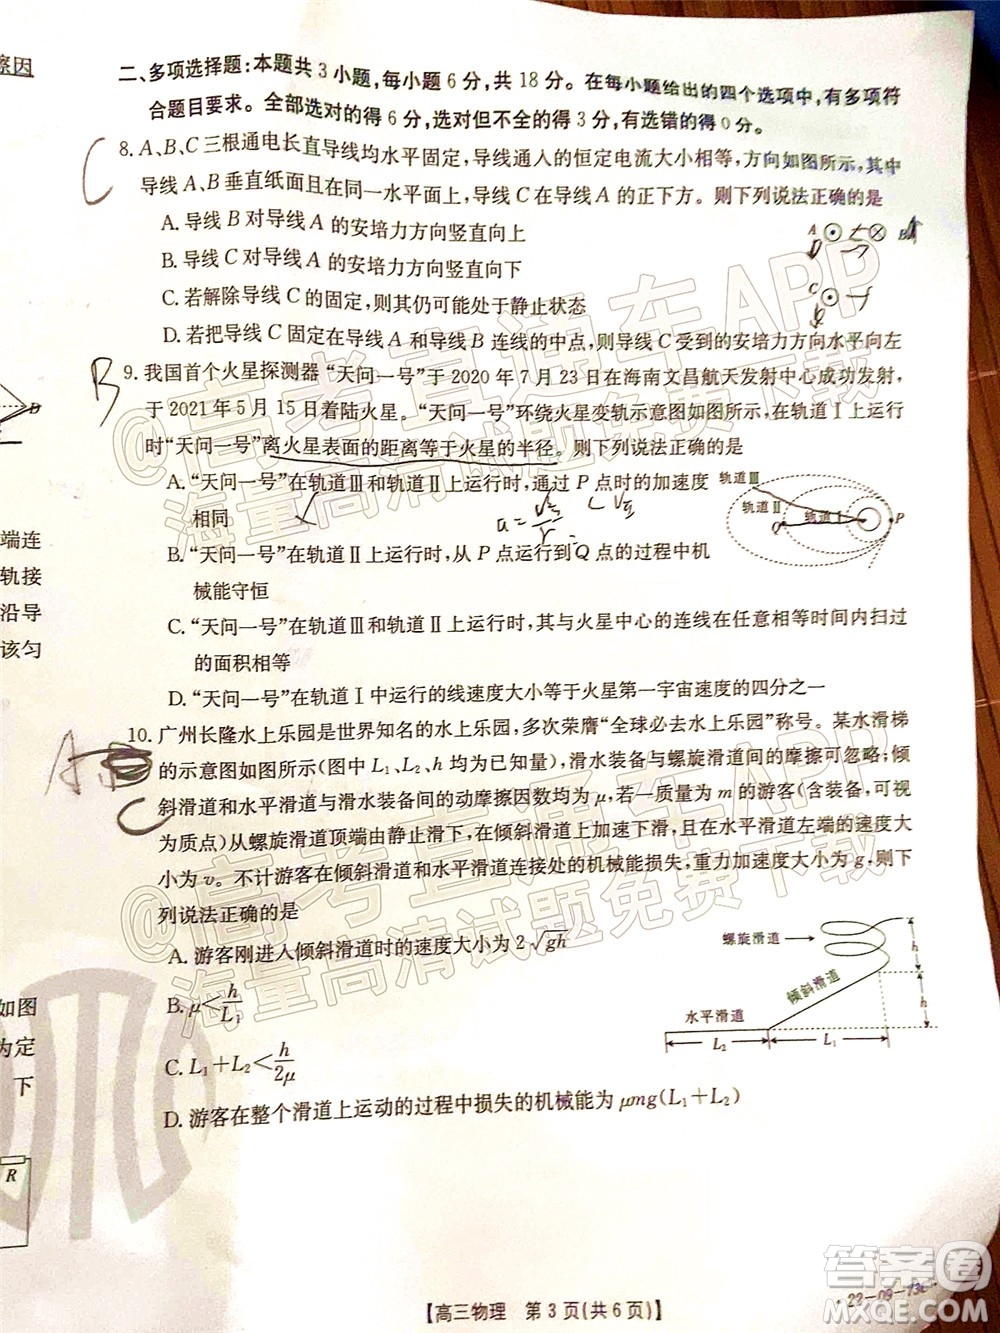 察因
二、多项选择题:本题共3小题,每小题6分,共18分。在每小题给出的四个选项中,有多项符
合题目要求。全部选对的得6分,选对但不全的得3分,有选错的得0分。
C
8. A、B、C三根通电长直导线均水平固定,导线通入的恒定电流大小相等,方向如图所示,其中
导线A、B垂直纸面且在同一水平面上,导线C在导线A的正下方。则下列说法正确的是
A. 导线B对导线A的安培力方向竖直向上
B. 导线C对导线A的安培力方向竖直向下
C. 若解除导线C的固定,则其仍可能处于静止状态
D. 若把导线C固定在导线A和导线B连线的中点,则导线C受到的安培力方向水平向左
A
B
C
B
9. 我国首个火星探测器“天问一号”于2020年7月23日在海南文昌航天发射中心成功发射,
于2021年5月15日着陆火星。“天问一号”环绕火星变轨示意图如图所示,在轨道Ⅰ上运行
时“天问一号”离火星表面的距离等于火星的半径。则下列说法正确的是
A. “天问一号”在轨道Ⅲ和轨道Ⅱ上运行时,通过P点时的加速度
相同
B. “天问一号”在轨道Ⅱ上运行时,从P点运行到Q点的过程中机
械能守恒
C. “天问一号”在轨道Ⅲ和轨道Ⅱ上运行时,其与火星中心的连线在任意相等时间内扫过
的面积相等
D. “天问一号”在轨道Ⅰ中运行的线速度大小等于火星第一宇宙速度的四分之一
轨道Ⅲ
轨道Ⅱ
轨道Ⅰ
Q
P
D
端连
轨接
沿导
该匀
10. 广州长隆水上乐园是世界知名的水上乐园,多次荣膺“全球必去水上乐园”称号。某水滑梯
的示意图如图所示(图中L₁、L₂、h均为已知量),滑水装备与螺旋滑道间的摩擦可忽略;倾
斜滑道和水平滑道与滑水装备间的动摩擦因数均为μ,若一质量为m的游客(含装备,可视
为质点)从螺旋滑道顶端由静止滑下,在倾斜滑道上加速下滑,且在水平滑道左端的速度大
小为v。不计游客在倾斜滑道和水平滑道连接处的机械能损失,重力加速度大小为g,则下
列说法正确的是
A. 游客刚进入倾斜滑道时的速度大小为2√gh
B. μ<h/L₁
C. L₁+L₂<h/2μ
D. 游客在整个滑道上运动的过程中损失的机械能为μmg(L₁+L₂)
螺旋滑道
倾斜滑道
水平滑道
L₂
L₁
h
h
C
如图
为定
下
R
@高考直通车APP
海量高清试题免费下载
@高考直通车APP
海量高清试题免费下载
【高三物理 第3页(共6页)】
答案圈